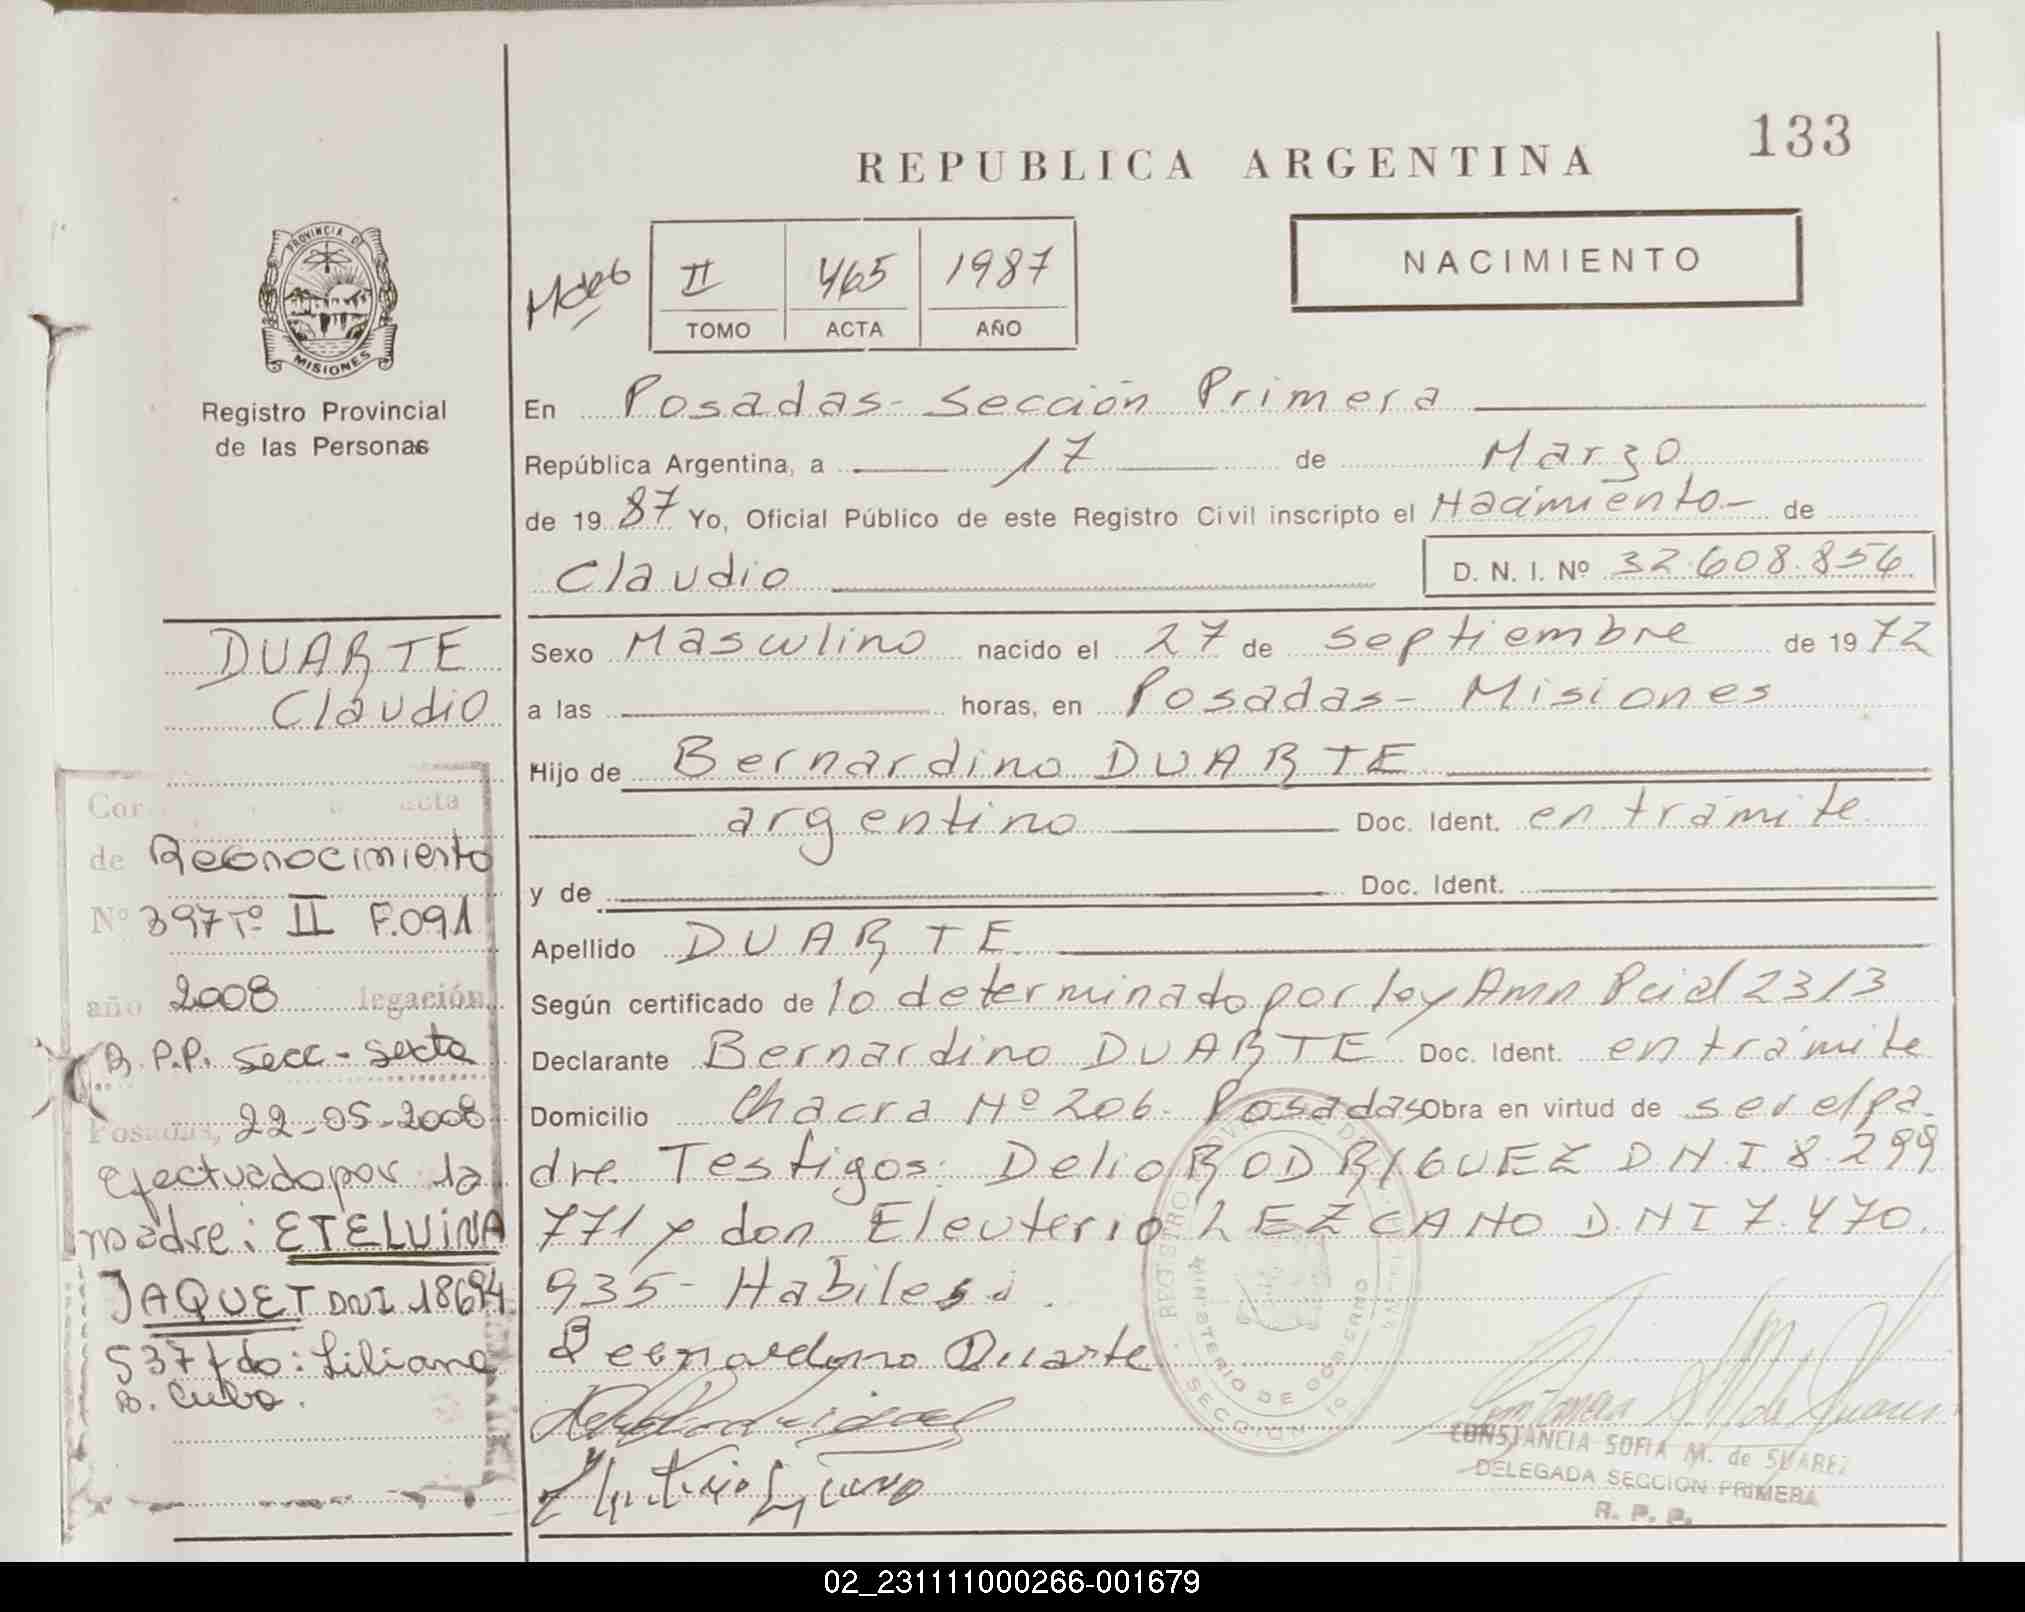 133
REPUBLICA ARGENTINA
NACIMIENTO
II 465 1987
TOMO ACTA AÑO
PROVINCIA DE
MISIONES
Registro Provincial
de las Personas
En Posadas - Sección Primera
República Argentina, a 17 de Marzo
de 1987 Yo, Oficial Público de este Registro Civil inscripto el Nacimiento - de
Claudio
D. N. I. Nº 32.608.856
Sexo Masculino nacido el 27 de septiembre de 1972
a las horas, en Posadas - Misiones
Hijo de Bernardino DUARTE
argentino Doc. Ident. en trámite
y de Doc. Ident.
Apellido DUARTE
Según certificado de lo determinado por ley 2313
Declarante Bernardino DUARTE Doc. Ident. en trámite
Domicilio Chacra Nº 206. Posadas Obra en virtud de ser el pa-
dre. Testigos: Delio RODRIGUEZ DNI 8.299
771 y don Eleuterio LEZCANO D.NI 7.470.
935 - Habiles
Bernardino Duarte
REGISTRO
MINISTERIO DE GOBIERNO
SECCION
CONSTANCIA SOFIA M. de SUAREZ
DELEGADA SECCION PRIMERA
R. P. P.
DUARTE
Claudio
acta
de Reconocimiento
Nº 397 Tº II F.091
año 2008 legación
R.P.P. Secc - Sexta
Posadas, 22-05-2008
efectuado por la
madre: ETELVINA
JAQUET DNI 18694
537 fdo: Liliana
B. Cubo.
02_231111000266-001679